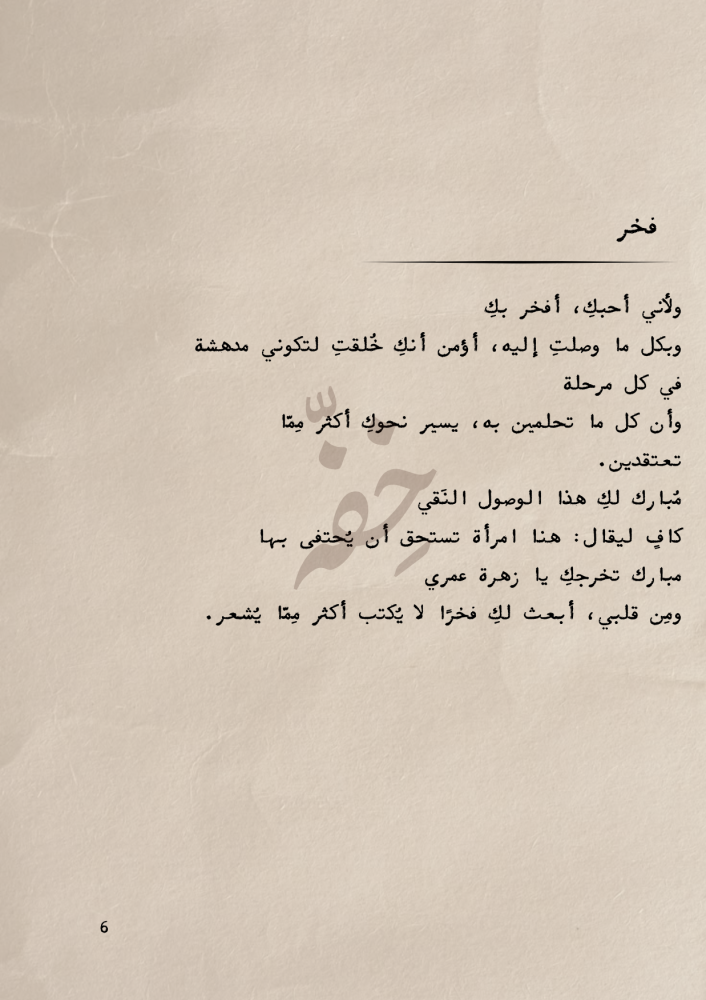 فخر
ولأني أحبكِ، أفخر بكِ
وبكل ما وصلتِ إليه، أؤمن أنكِ خُلقتِ لتكوني مدهشة
في كل مرحلة
وأن كل ما تحلمين به، يسير نحوكِ أكثر مِمّا
تعتقدين.
مُبارك لكِ هذا الوصول النَقي
كافٍ ليقال: هنا امرأة تستحق أن يُحتفى بها
مبارك تخرجكِ يا زهرة عمري
ومِن قلبي، أبعث لكِ فخرًا لا يُكتب أكثر مِمّا يُشعر.
خِفّه
6